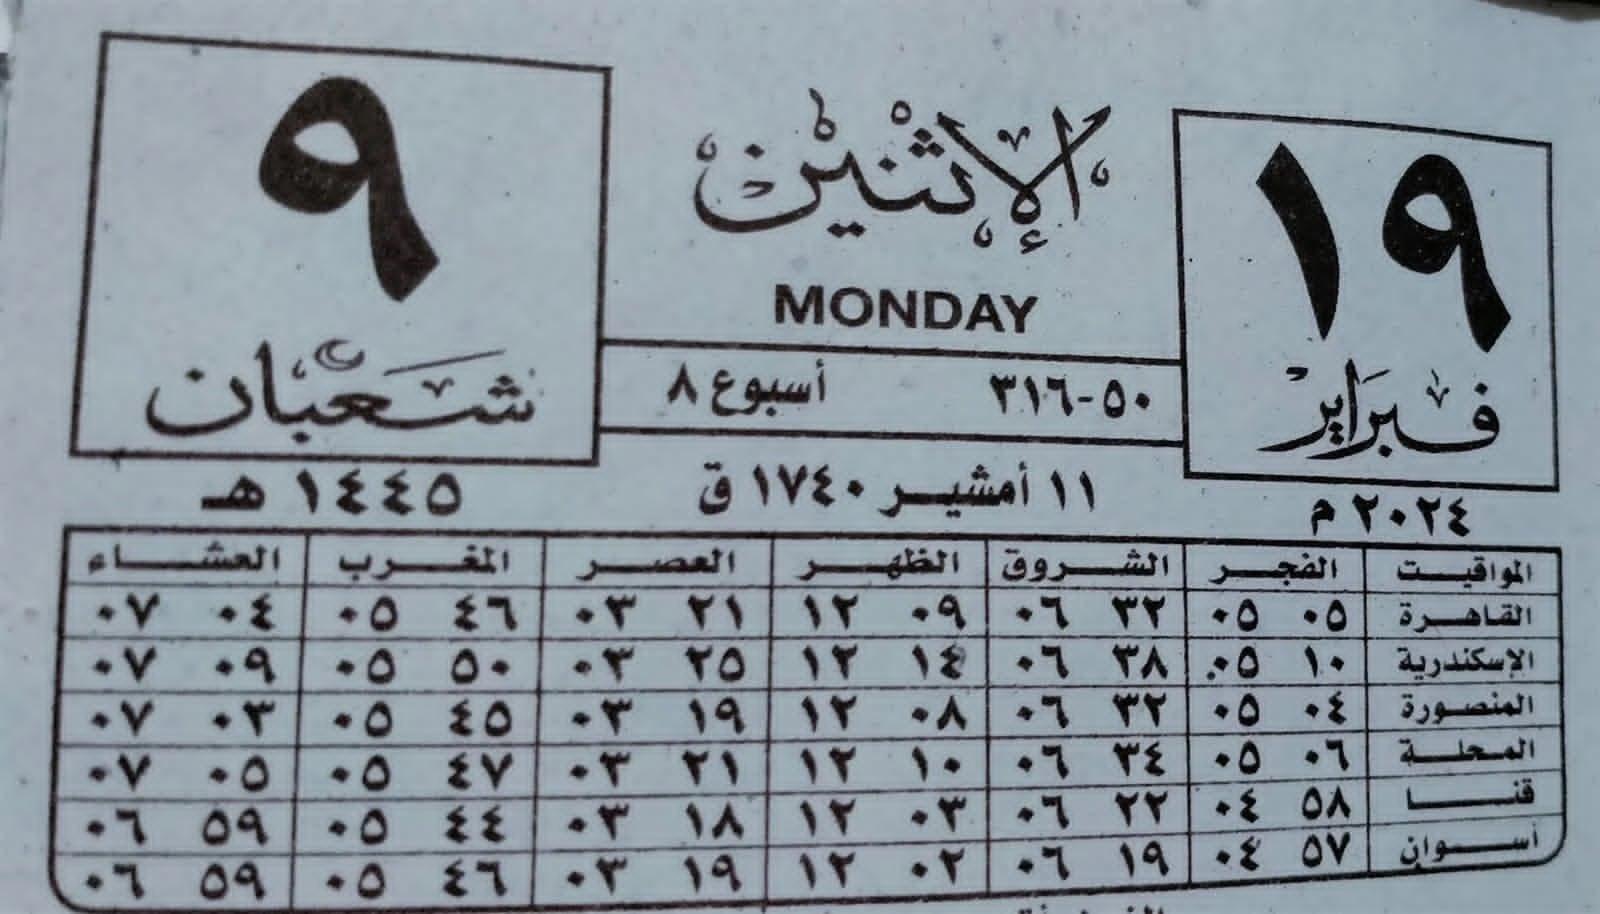 ١٩
فبراير
٢٠٢٤ م
الإثنين
MONDAY
٥٠-٣١٦ أسبوع ٨
١١ أمشير ١٧٤٠ ق
٩
شعبان
١٤٤٥ هـ
المواقيت الفجر الشروق الظهر العصر المغرب العشاء
القاهرة ٠٥ ٠٥ ٣٢ ٠٦ ٠٩ ١٢ ٢١ ٠٣ ٤٦ ٠٥ ٠٤ ٠٧
الإسكندرية ١٠ ٠٥ ٣٨ ٠٦ ١٤ ١٢ ٢٥ ٠٣ ٥٠ ٠٥ ٠٩ ٠٧
المنصورة ٠٤ ٠٥ ٣٢ ٠٦ ٠٨ ١٢ ١٩ ٠٣ ٤٥ ٠٥ ٠٣ ٠٧
المحلة ٠٦ ٠٥ ٣٤ ٠٦ ١٠ ١٢ ٢١ ٠٣ ٤٧ ٠٥ ٠٥ ٠٧
قنا ٥٨ ٠٤ ٢٢ ٠٦ ٠٣ ١٢ ١٨ ٠٣ ٤٤ ٠٥ ٥٩ ٠٦
أسوان ٥٧ ٠٤ ١٩ ٠٦ ٠٢ ١٢ ١٩ ٠٣ ٤٦ ٠٥ ٥٩ ٠٦